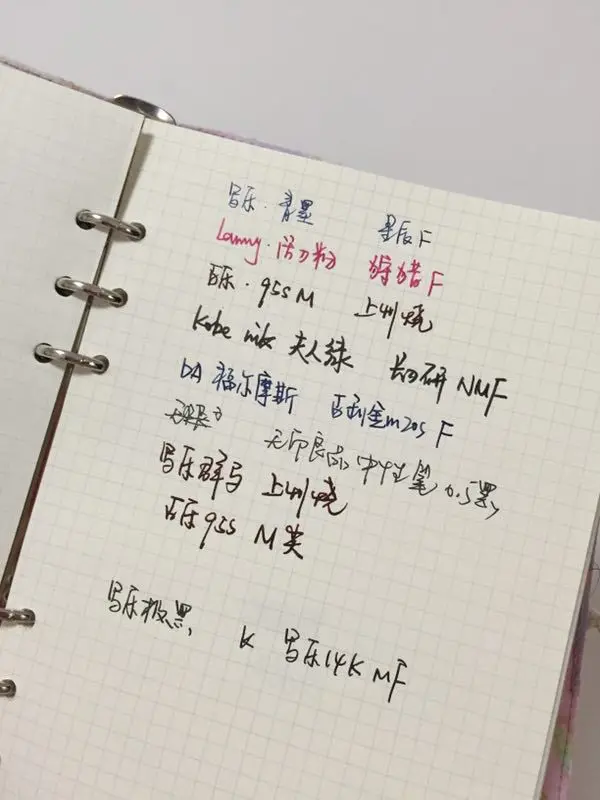 写乐·青墨 星辰F
Lamy·活力粉 狩猎F
百乐·95S M 上州烧
Kobe ink 夫人绿 长刀研 NMF
DA 福尔摩斯 百利金m205 F
无印良品 中性笔 0.5 黑
写乐群马 上州烧
百乐95S M尖
写乐极黑 K 写乐14K MF